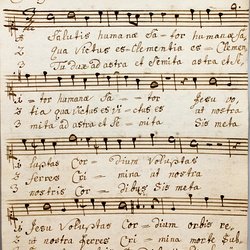 1 Salutis humanæ Sa-tor humanæ Sa,
2 qua victus es Clementia es Clemen,
3 Tu dux ad astra et Semita astra et Se,
1 tor humanæ Sa - tor Jesu vo,
2 tia qua victus es ut
3 mita ad astra et Se - mita Sis meta
1 luptas Cor - Dium Voluptas
2 ferres Cri - mina ut nostra
3 nostris Cor - Dibus Sis meta
1 Jesu Voluptas Cor - dium orbis re,
2 ut nostra ferres Cri - mina morte